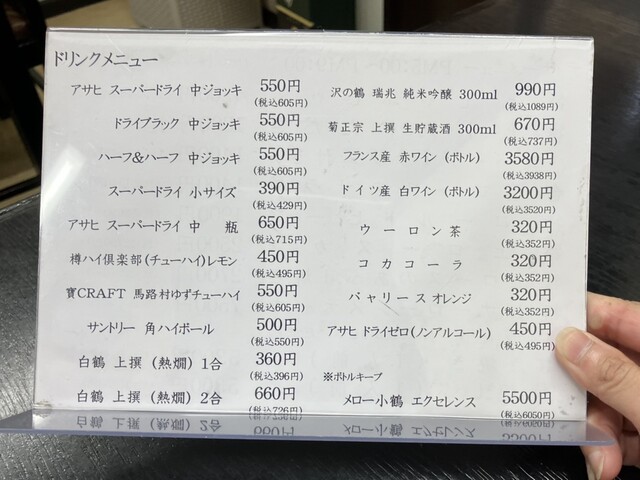 ドリンクメニュー
アサヒ スーパードライ 中ジョッキ 550円
(税込605円)
ドライブラック 中ジョッキ 550円
(税込605円)
ハーフ&ハーフ 中ジョッキ 550円
(税込605円)
スーパードライ 小サイズ 390円
(税込429円)
アサヒ スーパードライ 中 瓶 650円
(税込715円)
樽ハイ倶楽部(チューハイ)レモン 450円
(税込495円)
寶CRAFT 馬路村ゆずチューハイ 550円
(税込605円)
サントリー 角ハイボール 500円
(税込550円)
白鶴 上撰 (熱燗) 1合 360円
(税込396円)
白鶴 上撰 (熱燗) 2合 660円
(税込726円)
沢の鶴 瑞兆 純米吟醸 300ml 990円
(税込1089円)
菊正宗 上撰 生貯蔵酒 300ml 670円
(税込737円)
フランス産 赤ワイン (ボトル) 3580円
(税込3938円)
ドイツ産 白ワイン (ボトル) 3200円
(税込3520円)
ウーロン茶 320円
(税込352円)
コカコーラ 320円
(税込352円)
バャリース オレンジ 320円
(税込352円)
アサヒ ドライゼロ(ノンアルコール) 450円
(税込495円)
※ボトルキープ
メロー小鶴 エクセレンス 5500円
(税込6050円)